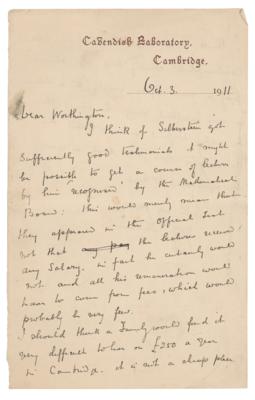 Cavendish Laboratory,
Cambridge.
Oct. 3. 1911
Dear Worthington,
I think if Silberstein got
sufficiently good testimonials it might
be possible to get a course of lectures
by him 'recognised' by the Mathematical
Board: this would merely mean that
they appeared in the Official List
not that the lecturer received
any Salary. in fact he certainly would
not and all his remuneration would
have to come from fees, which would
probably be very few.
I should think a family would find it
very difficult to live on £250 a year
in Cambridge. it is not a cheap place